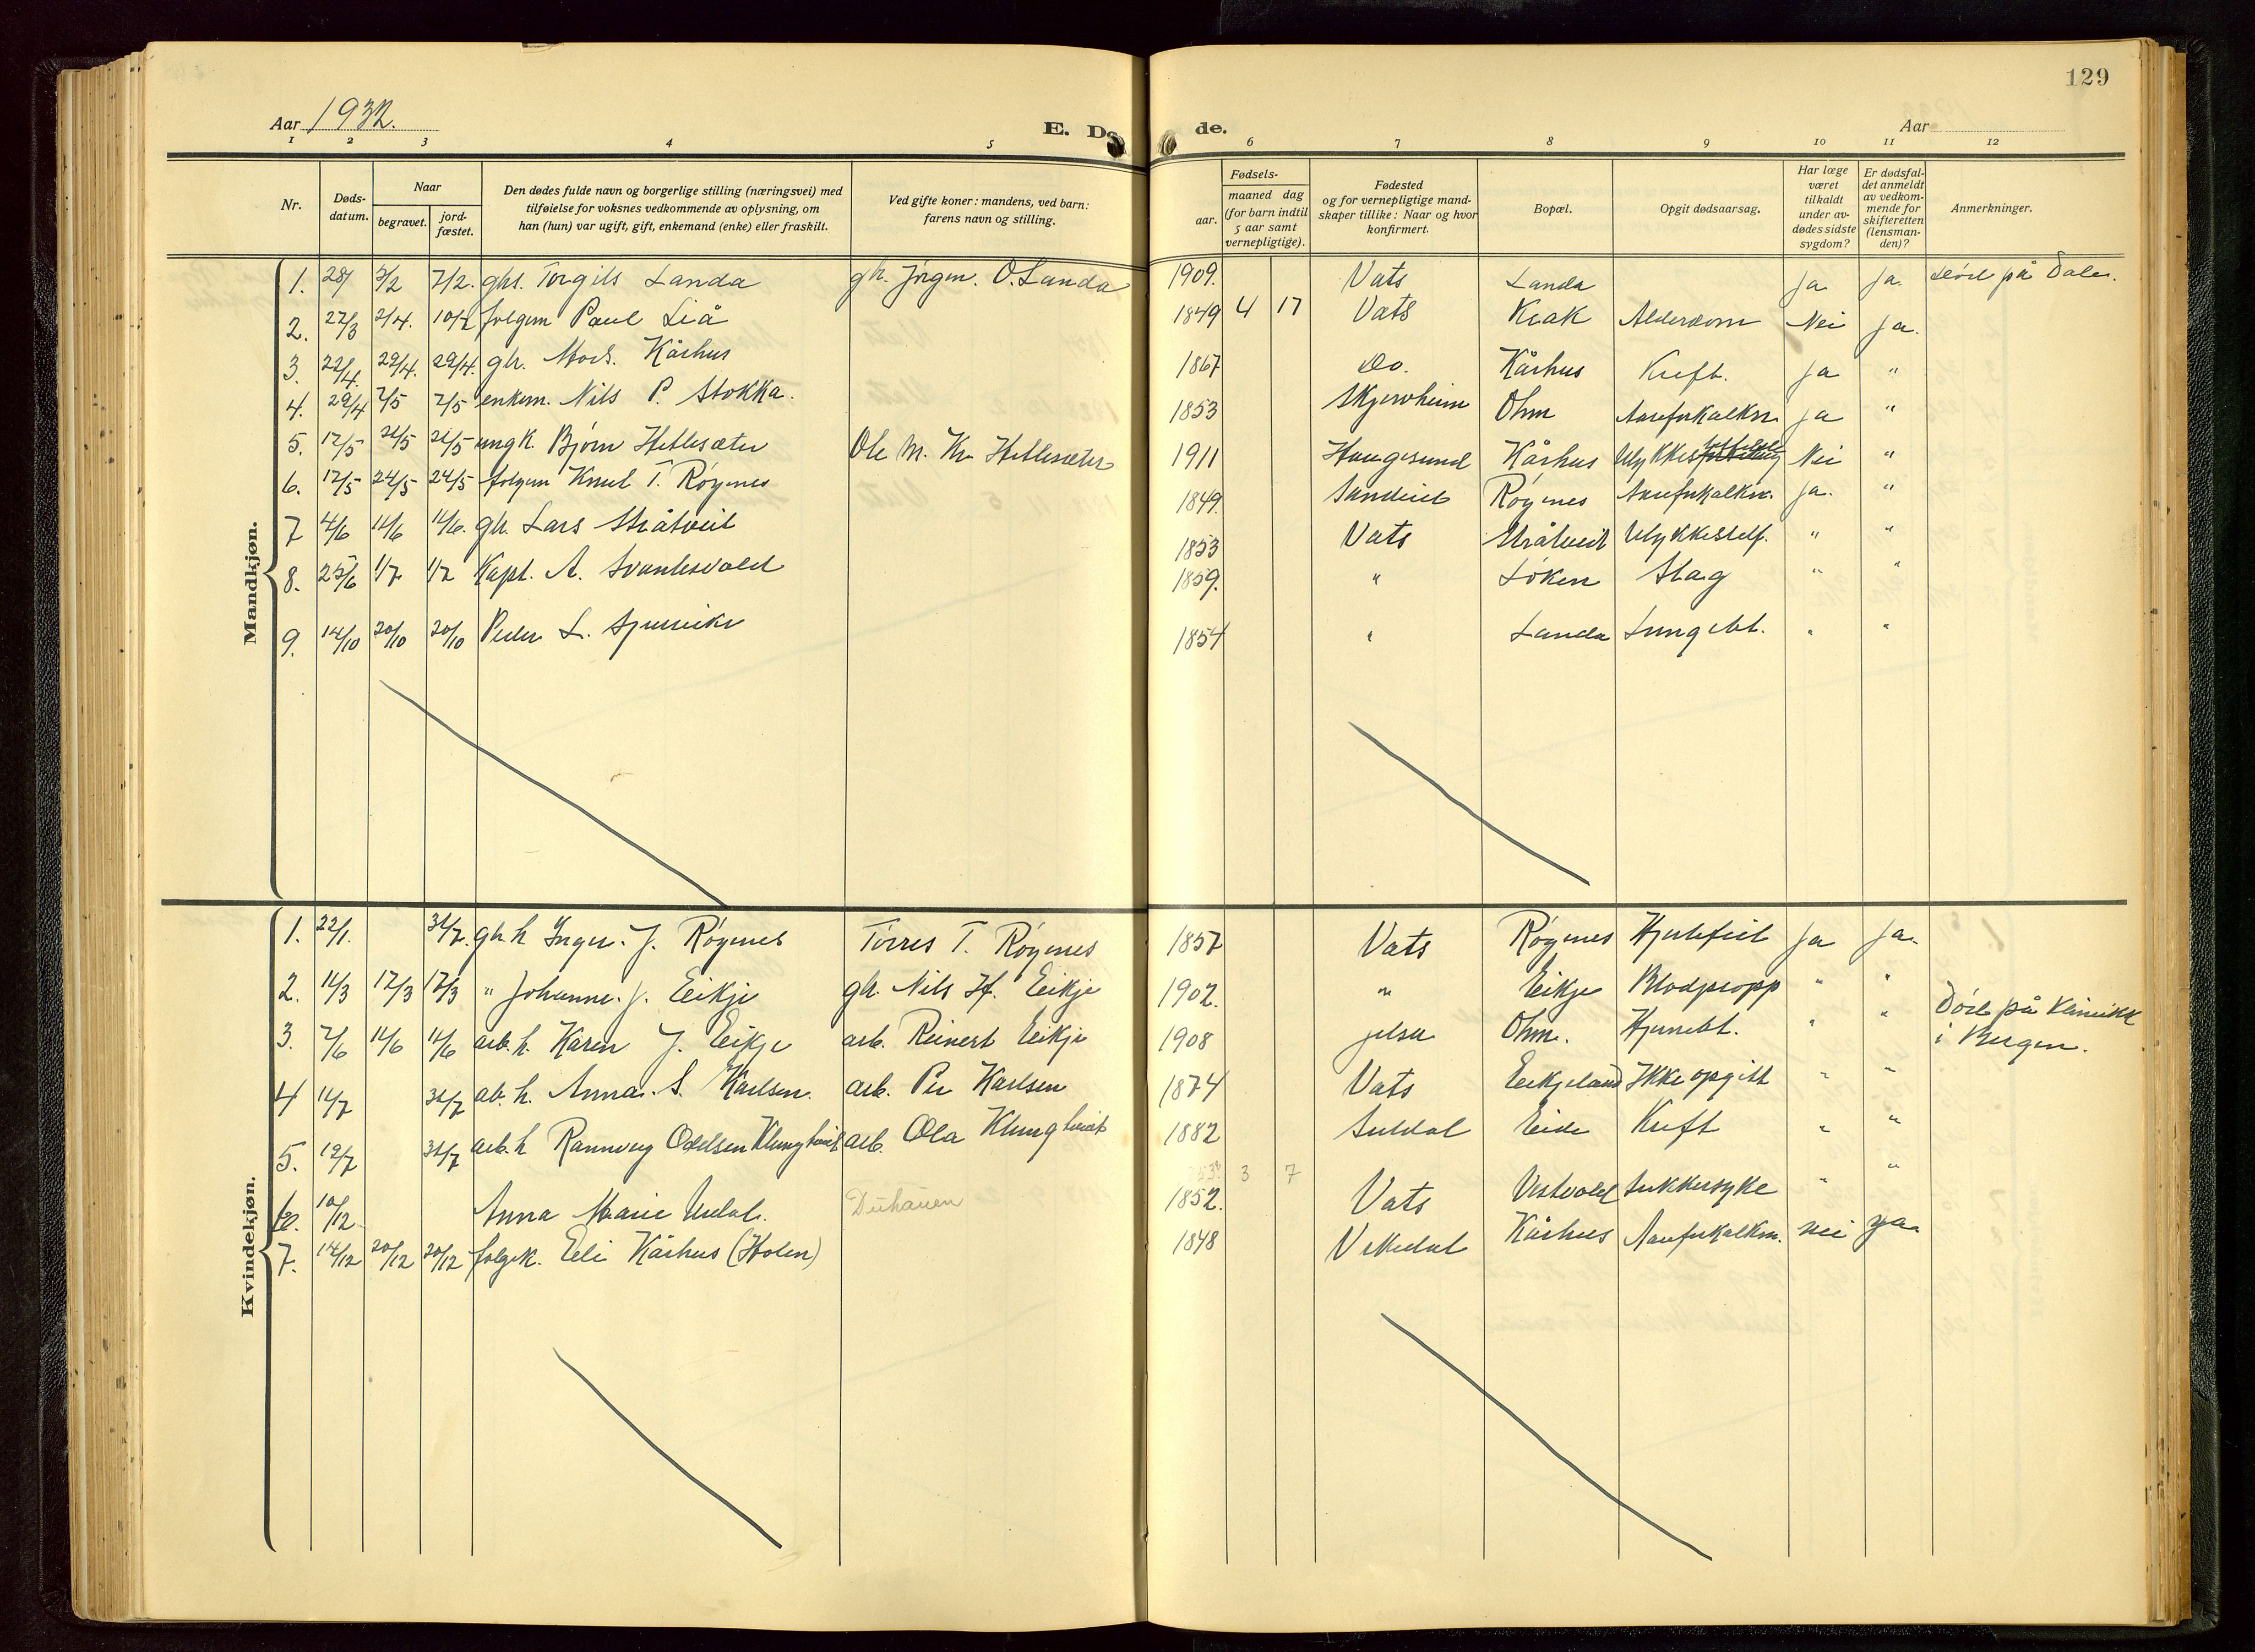 129
Aar 1932.
E. D
de.
Aar
1 2 3 4 5 6 7 8 9 10 11 12
Nr.
Døds-datum.
Naar
begravet.
jord-fæstet.
Den dødes fulde navn og borgerlige stilling (næringsvei) med
tilføielse for voksnes vedkommende av oplysning, om
han (hun) var ugift, gift, enkemand (enke) eller fraskilt.
Ved gifte koner: mandens, ved barn:
farens navn og stilling.
Fødsels-
aar.
maaned dag
(for barn indtil
5 aar samt
vernepligtige).
Fødested
og for vernepligtige mand-
skaper tillike: Naar og hvor
konfirmert.
Bopæl.
Opgit dødsaarsag.
Har læge
været
tilkaldt
under av-
dødes sidste
sygdom?
Er dødsfal-
det anmeldt
av vedkom-
mende for
skifteretten
(lensman-
den)?
Anmerkninger.
Mandkjøn.
1. 7/2. Torgils Landa gbr. Jørgen O. Landa 1909. Vats Landa Ja Ja. død på Dale.
2. 22/3 2/4. Paul Liå 1849 4 17 Vats Alderdom Nei Ja.
3. 22/4. 29/4. 29/4. gbr. Kårhus 1867 Do. Kårhus Kreft. Ja "
4. 29/4 7/5 7/5 enkem. Nils P. Stokka. 1853 Ohm Aareforkalkn. Ja "
5. 17/5 21/5 21/5 ungk. Bjørn Hetlesæter Ole M. Hetlesæter 1911 Haugesund Kårhus Nei "
6. 17/5 24/5 24/5 Knut T. Røgenes 1849. Sandeid Røgenes Aareforkalkn. Ja. "
7 4/6 11/6 11/6. gbr. Lars Stråtveit 1853 Vats Stråtveit Ulykkestilf. " "
8. 25/6 1/7 1/7 Kapt. A. Svantesvold 1859. " Løken Slag " "
9. 14/10 20/10 20/10 Peder L. 1854 " Landa Lungebt. " "
Kvindekjøn.
1. 22/1. 31/7. gbr.h Inger J. Røgenes Torres T. Røgenes 1857 Vats Røgenes Hjertefeil Ja Ja.
2. 11/3 17/3 17/3 " Johanne J. Eikje gbr. Nils H. Eikje 1902. " Eikje Blodpropp " "
3. 7/6 14/6 14/6 arb.h. Karen J. Eikje arb. Reinert Eikje 1908 Jelsa Ohm. " " Død på klinikk
i Bergen.
4 14/7 31/7 ab.h. Anna S. Karlsen. arb. Per Karlsen 1874 Vats Eikjeland Ikke opgitt " "
5. 19/7 31/7 arb.h Rannveig Odelsen Klungtveit arb. Ola Klungtveit 1882 Suldal Eide Kreft " "
3 7
6. 10/12 Anna Marie 1852. Vats Vestvold Sukkersyke " "
7. 14/12 20/12 20/12 folgek. Eli Kårhus (Holen) 1848 Vikedal Kårhus Aareforkalkn. nei ja